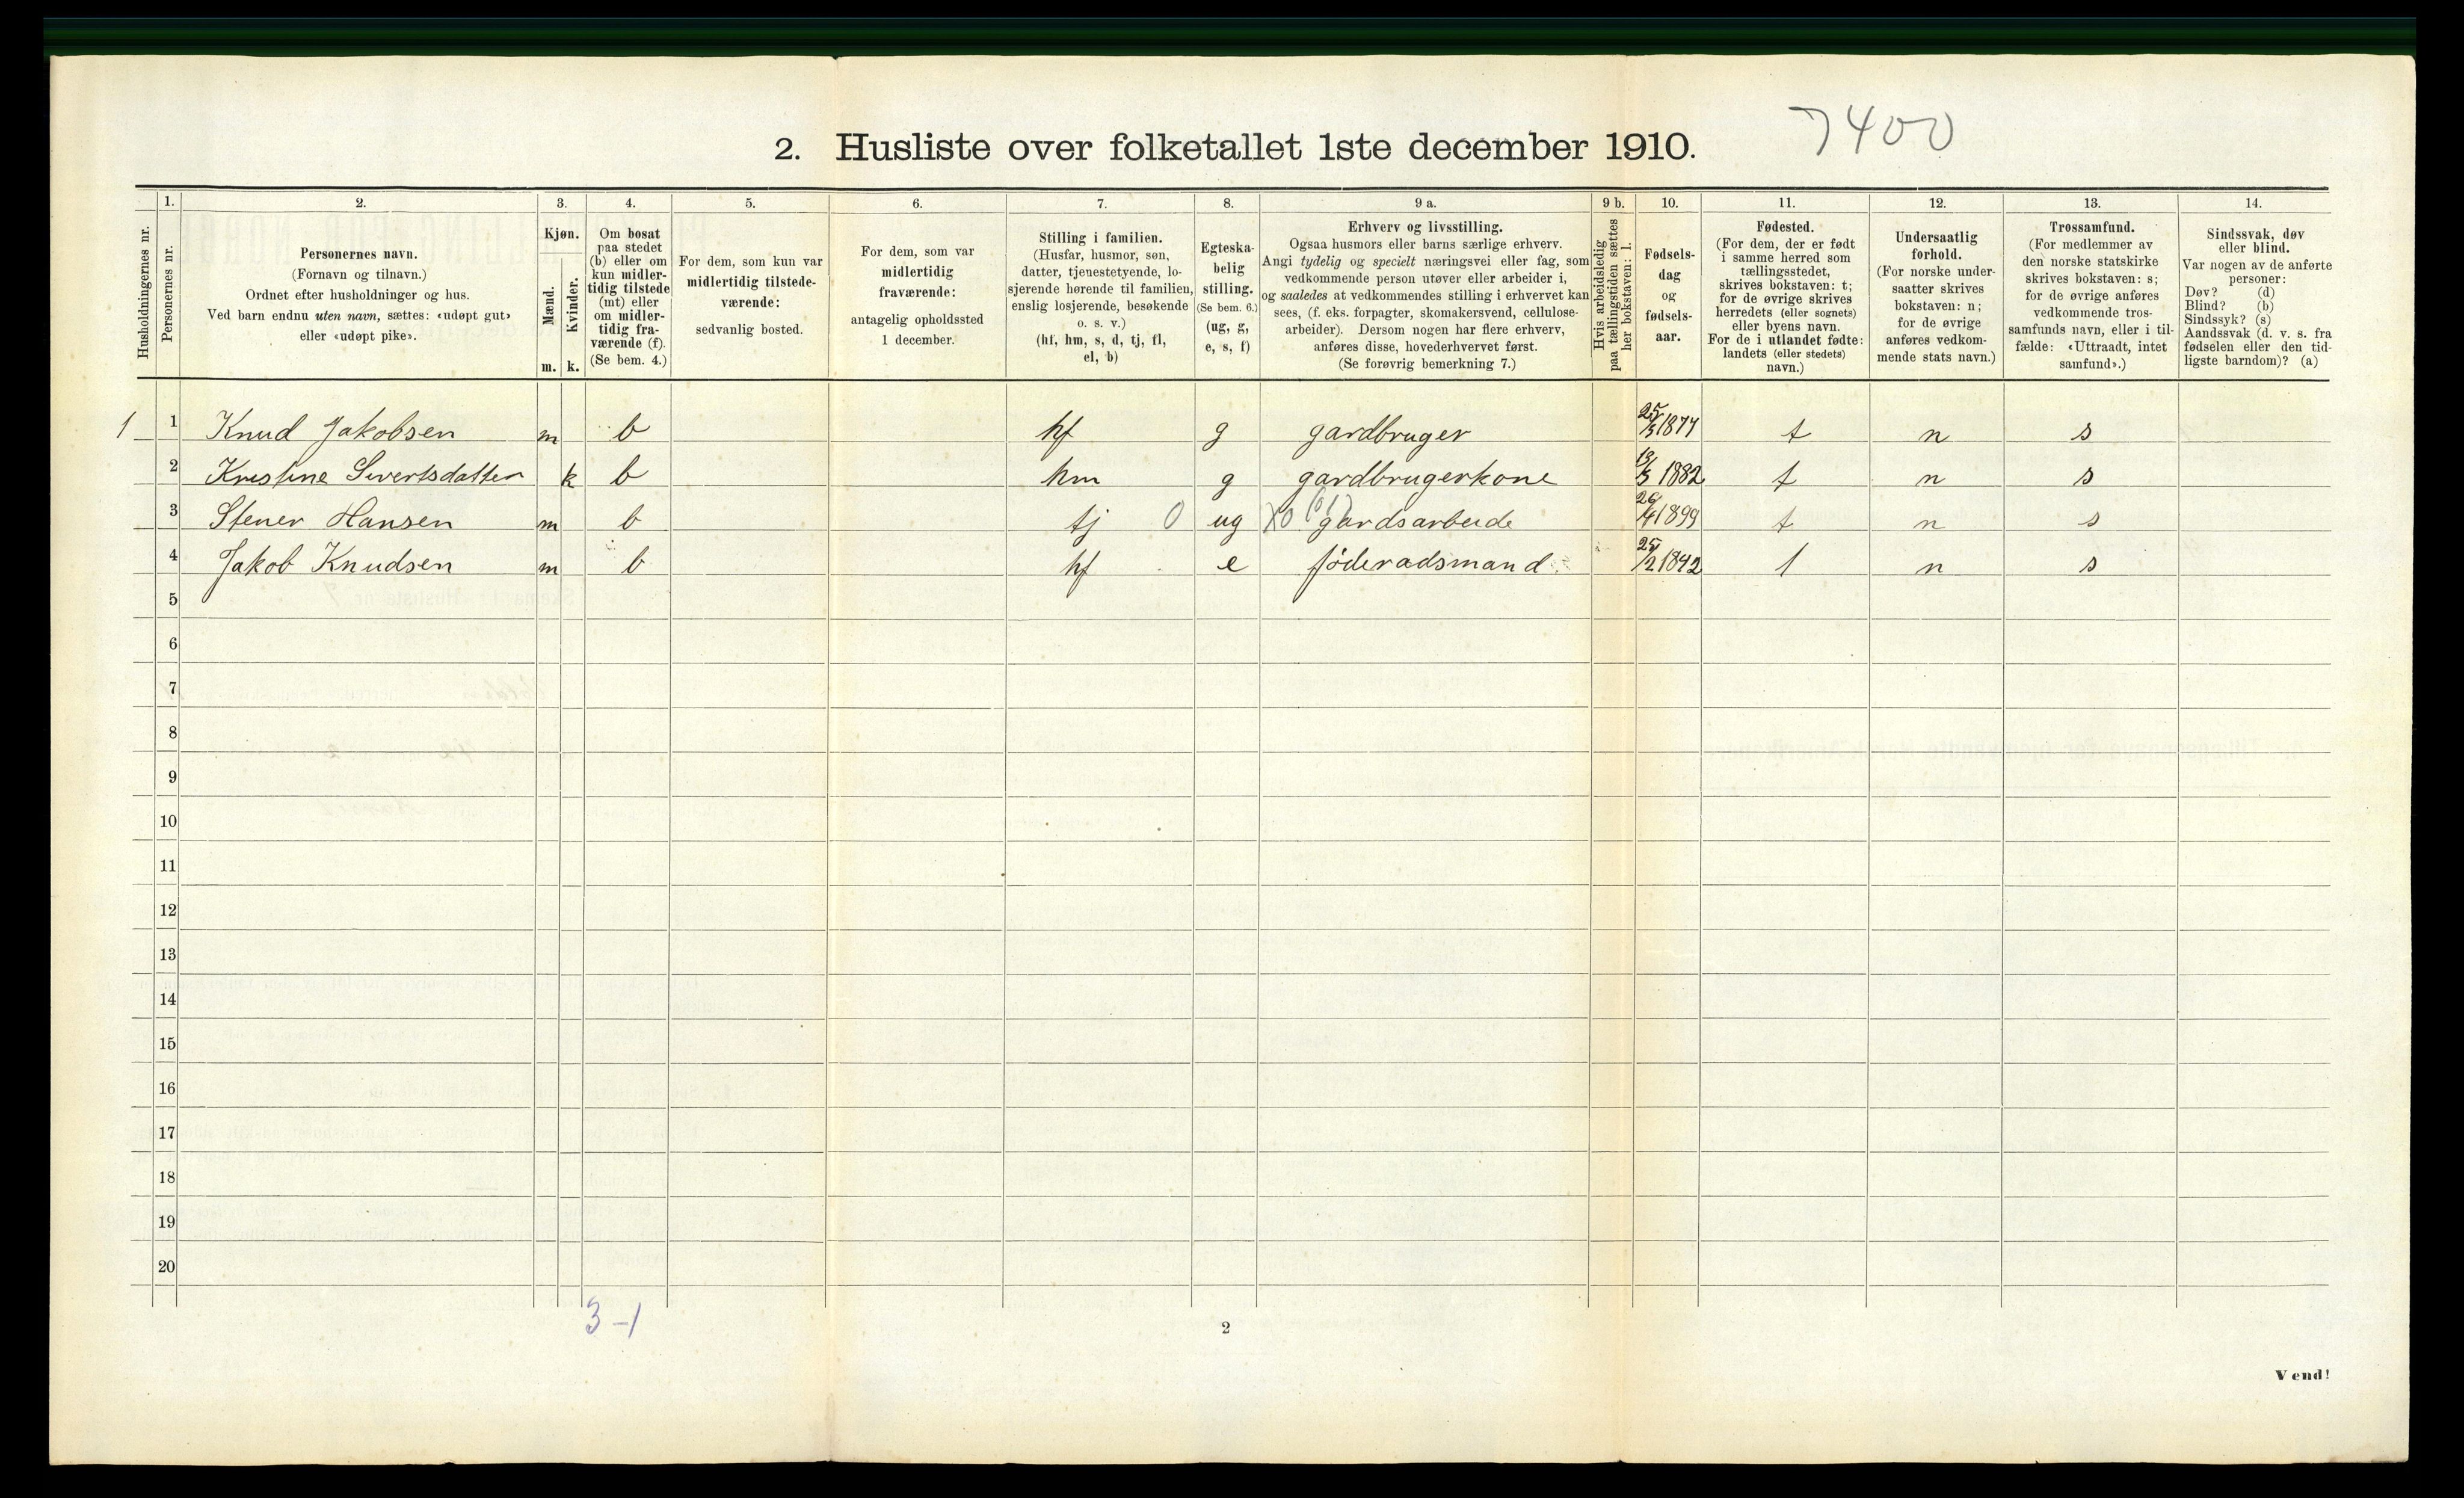 7400
2. Husliste over folketallet 1ste december 1910.
Husholdningernes nr.
1.
Personernes nr.
2.
Personernes navn.
(Fornavn og tilnavn.)
Ordnet efter husholdninger og hus.
Ved barn endnu uten navn, sættes: «udøpt gut»
eller «udøpt pike».
3.
Kjøn.
Mænd.
Kvinder.
m. k.
4.
Om bosat
paa stedet
(b) eller om
kun midler-
tidig tilstede
(mt) eller
om midler-
tidig fra-
værende (f).
(Se bem. 4.)
5.
For dem, som kun var
midlertidig tilstede-
værende:
sedvanlig bosted.
6.
For dem, som var
midlertidig
fraværende:
antagelig opholdssted
1 december.
7.
Stilling i familien.
(Husfar, husmor, søn,
datter, tjenestetyende, lo-
sjerende hørende til familien,
enslig losjerende, besøkende
o. s. v.)
(hf, hm, s, d, tj, fl,
el, b)
8.
Egteska-
belig
stilling.
(Se bem. 6.)
(ug, g,
e, s, f)
9 a.
Erhverv og livsstilling.
Ogsaa husmors eller barns særlige erhverv.
Angi tydelig og specielt næringsvei eller fag, som
vedkommende person utøver eller arbeider i,
og saaledes at vedkommendes stilling i erhvervet kan
sees, (f. eks. forpagter, skomakersvend, cellulose-
arbeider). Dersom nogen har flere erhverv,
anføres disse, hovederhvervet først.
(Se forøvrig bemerkning 7.)
9 b.
Hvis arbeidsledig
paa tællingstiden sættes
her bokstaven: l.
10.
Fødsels-
dag
og
fødsels-
aar.
11.
Fødested.
(For dem, der er født
i samme herred som
tællingsstedet,
skrives bokstaven: t;
for de øvrige skrives
herredets (eller sognets)
eller byens navn.
For de i utlandet fødte:
landets (eller stedets)
navn.)
12.
Undersaatlig
forhold.
(For norske under-
saatter skrives
bokstaven: n;
for de øvrige
anføres vedkom-
mende stats navn.)
13.
Trossamfund.
(For medlemmer av
den norske statskirke
skrives bokstaven: s;
for de øvrige anføres
vedkommende tros-
samfunds navn, eller i til-
fælde: «Uttraadt, intet
samfund».)
14.
Sindssvak, døv
eller blind.
Var nogen av de anførte
personer:
Døv? (d)
Blind? (b)
Sindssyk? (s)
Aandssvak (d. v. s. fra
fødselen eller den tid-
ligste barndom)? (a)
1 1 Knud Jakobsen m b hf g gardbruger 25/5 1877 t n s
2 Kristine Sivertsdatter k b hm g gardbrugerkone 13/3 1882 t n s
3 Stener Hansen m b tj 0 ug X0 (61) gardsarbeide 26/4 1899 t n s
4 Jakob Knudsen m b hf e føderadsmand 25/2 1842 t n s
5
6
7
8
9
10
11
12
13
14
15
16
17
18
19
20
3-1
2
Vend!